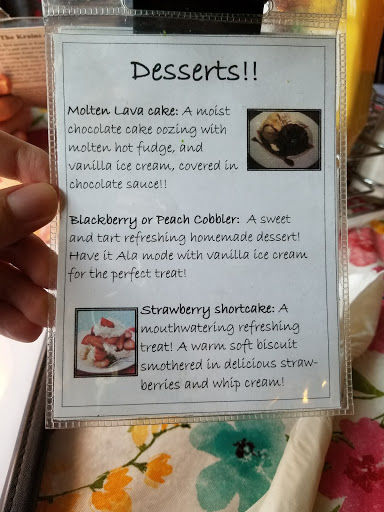 The Kraine
Desserts!!
Molten Lava cake: A moist
chocolate cake oozing with
molten hot fudge, and
vanilla ice cream, covered in
chocolate sauce!!
Blackberry or Peach Cobbler: A sweet
and tart refreshing homemade dessert!
Have it Ala mode with vanilla ice cream
for the perfect treat!
Strawberry shortcake: A
mouthwatering refreshing
treat! A warm soft biscuit
smothered in delicious straw-
berries and whip cream!